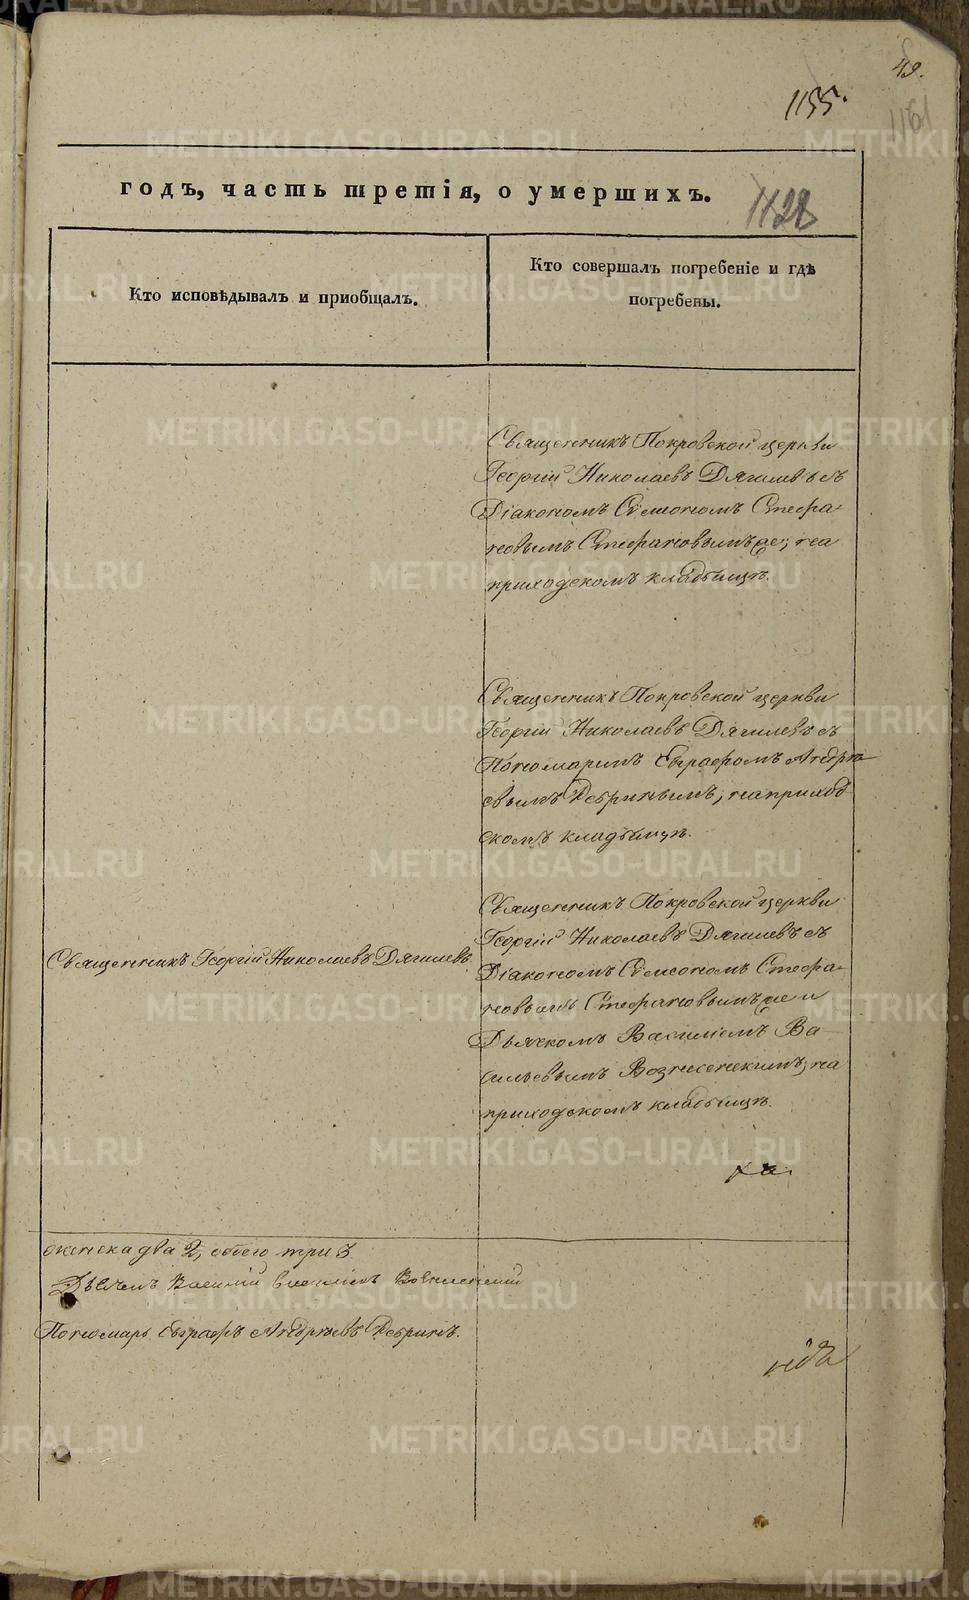 49.
1155.
1161
1128
годъ, часть третія, о умершихъ.
Кто исповѣдывалъ и приобщалъ.
Кто совершалъ погребеніе и гдѣ
погребены.
Священникъ Покровской церкви
Георгій Николаевъ Дягилевъ съ
Діакономъ Сѵмеономъ Стефа-
новымъ Стефановымъ же; на
приходскомъ кладбищѣ.
Священникъ Покровской церкви
Георгій Николаевъ Дягилевъ съ
Пономаремъ Евграфомъ Андрѣ-
евымъ Ребринымъ, на приход-
скомъ кладбищѣ.
Священникъ Георгій Николаевъ Дягилевъ.
Священникъ Покровской церкви
Георгій Николаевъ Дягилевъ съ
Діакономъ Сѵмеономъ Стефа-
новымъ Стефановымъ же и
Дьячкомъ Василіемъ Ва-
сильевымъ Вознесенскимъ, на
приходскомъ кладбищѣ.
женска два 2, обоего три 3.
Дьячекъ Василій Васильевъ Вознесенскій
Пономарь Евграфъ Андрѣевъ Ребринъ.
METRIKI.GASO-URAL.RU